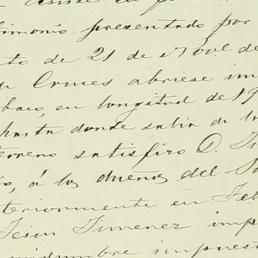 timonio presentado por
to de 21 de
Cruces abriese im
baco, en longitud de 19
hasta donde salia de
terreno satisfizo D.
á los dueños del
teriormente en Feb
Jesus Jimenez imp
dumbre impuest